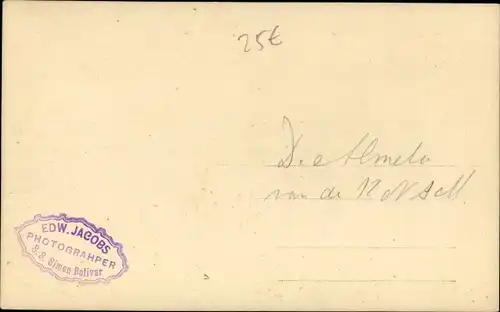 25€
D. Almelo
van de KNSM
EDW. JACOBS
PHOTOGRAHPER
S.S. Simon Bolivar